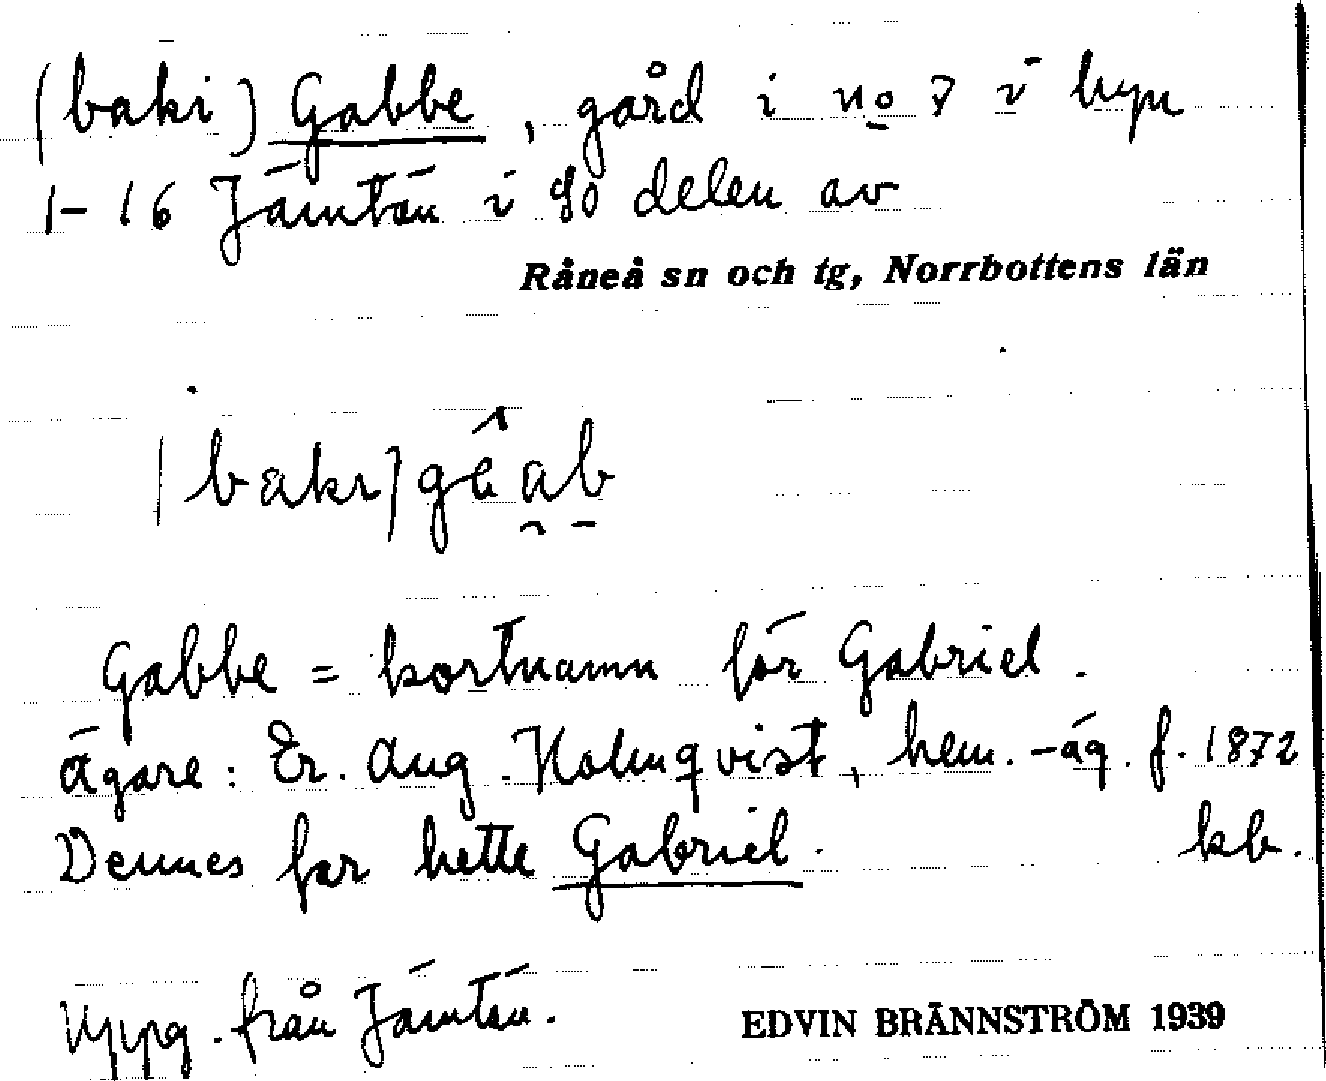 (baki) Gabbe, gård i no 7 i byn
1-16 Jämtön i so delen av
Råneå sn och tg, Norrbottens län
Gabbe = kortnamn för Gabriel.
Ägare: Er. Aug. Holmqvist, hem.-äg. f. 1872
Dennes far hette Gabriel. kb.
Uppg. från Jämtön.
EDVIN BRÄNNSTRÖM 1939